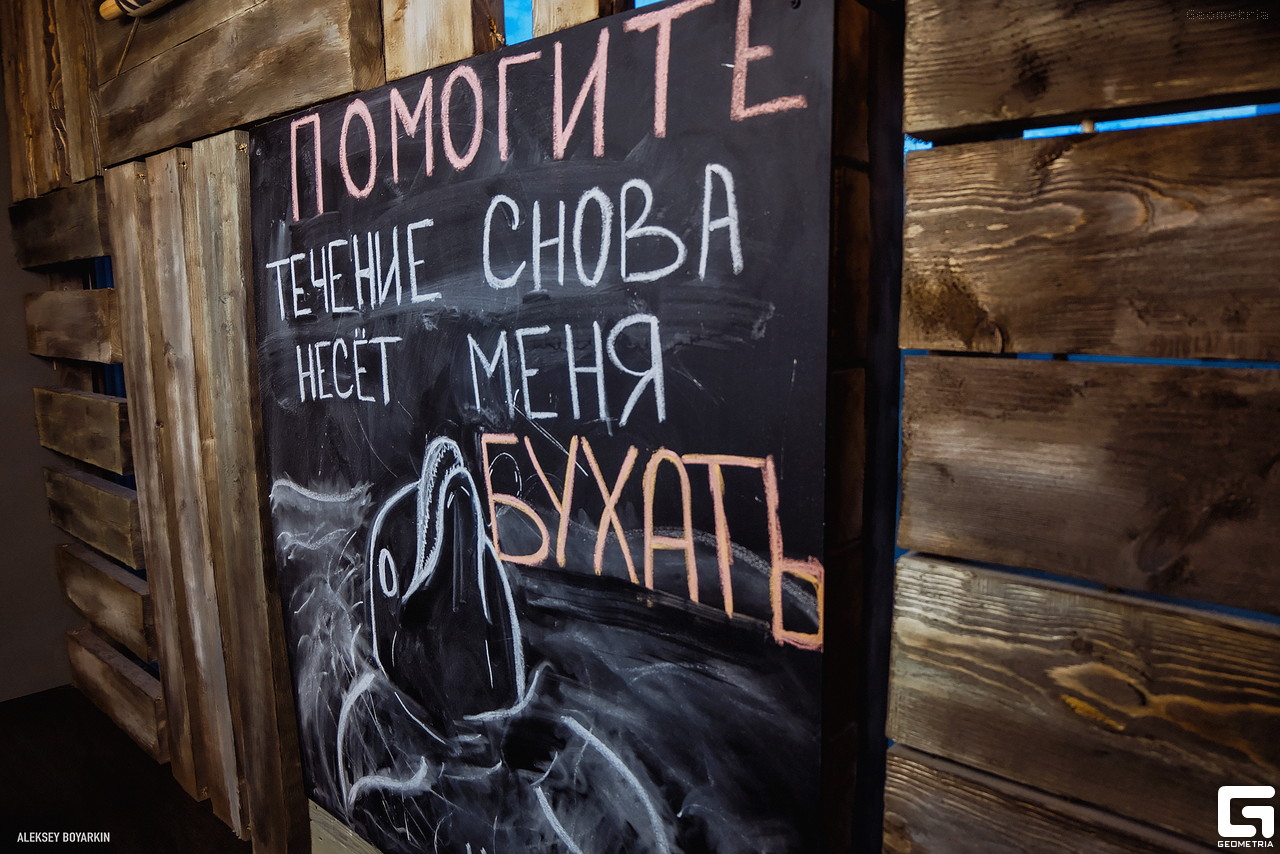 Geometria
ПОМОГИТЕ
ТЕЧЕНИЕ СНОВА
НЕСЁТ МЕНЯ
БУХАТЬ
ALEKSEY BOYARKIN
GEOMETRIA